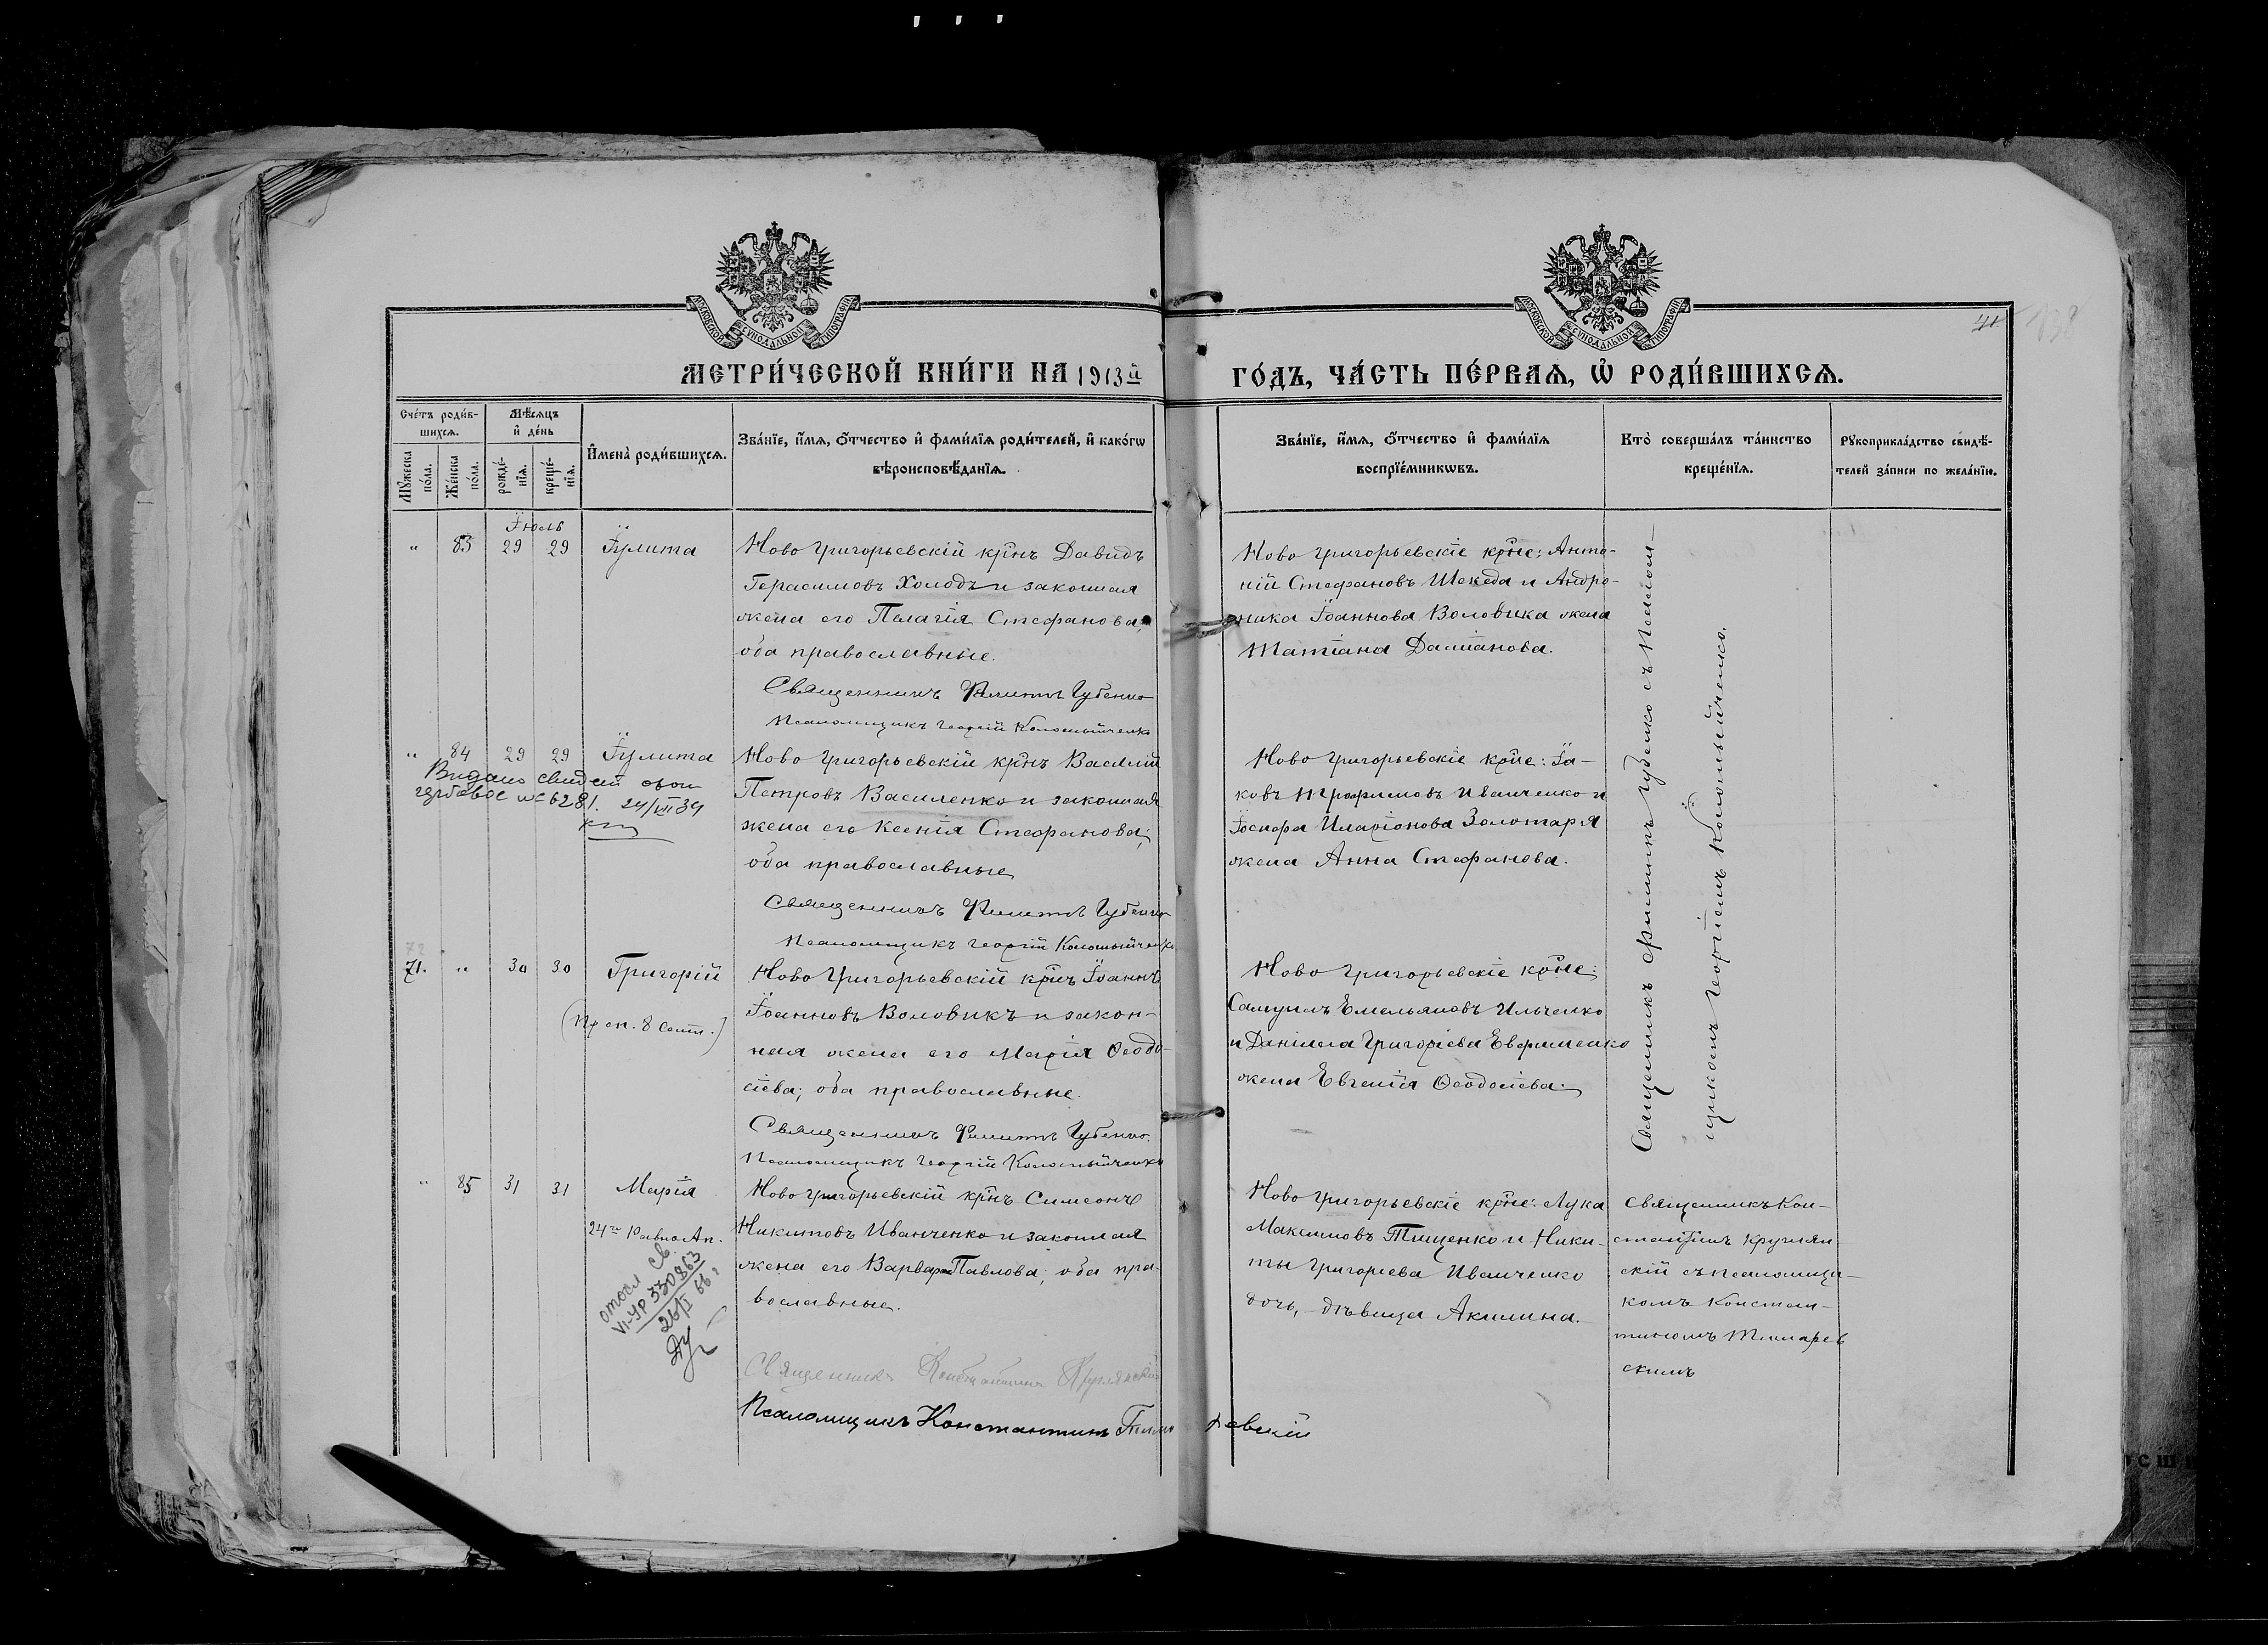 МЕТРИ́ЧЕСКОЙ КНИ́ГИ НА 1913й ГО́ДЪ, ЧА́СТЬ ПЕ́РВАЯ, Ѡ РОДИ́ВШИХСЯ.
41
Сче́тъ роди́в-
шихся.
Мѣ́сяцъ
и де́нь
Му́жеска по́ла.
Же́нска по́ла.
рожде́нїя.
креще́нїя.
Имена̀ роди́вшихся.
Зва́нїе, и́мя, о́тчество и фами́лїя роди́телей, и како́гѡ
вѣроисповѣ́данїя.
Зва́нїе, и́мя, о́тчество и фами́лїя
воспрїе́мникѡвъ.
Кто̀ соверша́лъ та́инство
креще́нїя.
Рукоприкла́дство свидѣ́-
телей за́писи по жела́нїю.
Їюль
" 83 29 29 Їулита
Ново Григорьевскій крнъ Давидъ
Герасимовъ Холодъ и законная
жена его Пелагія Стефанова;
оба православные.
Священникъ Филиппъ Губенко
Псаломщикъ Георгій Коломыйченко
Ново Григорьевскіе крне: Анто-
ній Стефановъ Шекеда и Андро-
ника Їоаннова Воловика жена
Татіана Даміанова.
" 84 29 29 Їулита
Видано свидет
гербовое № 6281. 24/VII 34
Ново Григорьевскій крнъ Василій
Петровъ Василенко и законная
жена его Ксенія Стефанова;
оба православные
Священникъ Филиппъ Губенко
Псаломщикъ Георгій Коломыйченко
Ново Григорьевскіе крне: Їа-
ковъ Трофимовъ Иванченко и
Їосифа Иларіонова Золотаря
жена Анна Стефанова.
72
71. " 30 30 Григорій
Ново Григорьевскій крнъ Їоаннъ
Їоанновъ Воловикъ и закон-
ная жена его Марія Ѳеодо-
сіева; оба православные.
Священникъ Филиппъ Губенко.
Псаломщикъ Георгій Коломыйченко
Ново Григорьевскіе крне:
Самуилъ Емельяновъ Ильченко
и Даніила Григоріева Евфименко
жена Евгенія Ѳеодосіева.
Священникъ Филиппъ Губенко съ Псалом-
щикомъ Георгіемъ Коломыйченко.
" 85 31 31 Марія
24го РавноАп.
отосл св.
VI-УР 330863
26/I 66г
Ново Григорьевскій крнъ Симеонъ
Никитовъ Иванченко и законная
жена его Варвара Павлова; оба пра-
вославные.
Священникъ Константинъ Круглянскій
Псаломщикъ Константинъ
Ново Григорьевскіе крне: Лука
Максимовъ Тищенко и Ники-
ты Григоріева Иванченко
дочь, дѣвица Акилина.
Священникъ Кон-
стантинъ Круглян-
скій съ псаломщи-
комъ Констан-